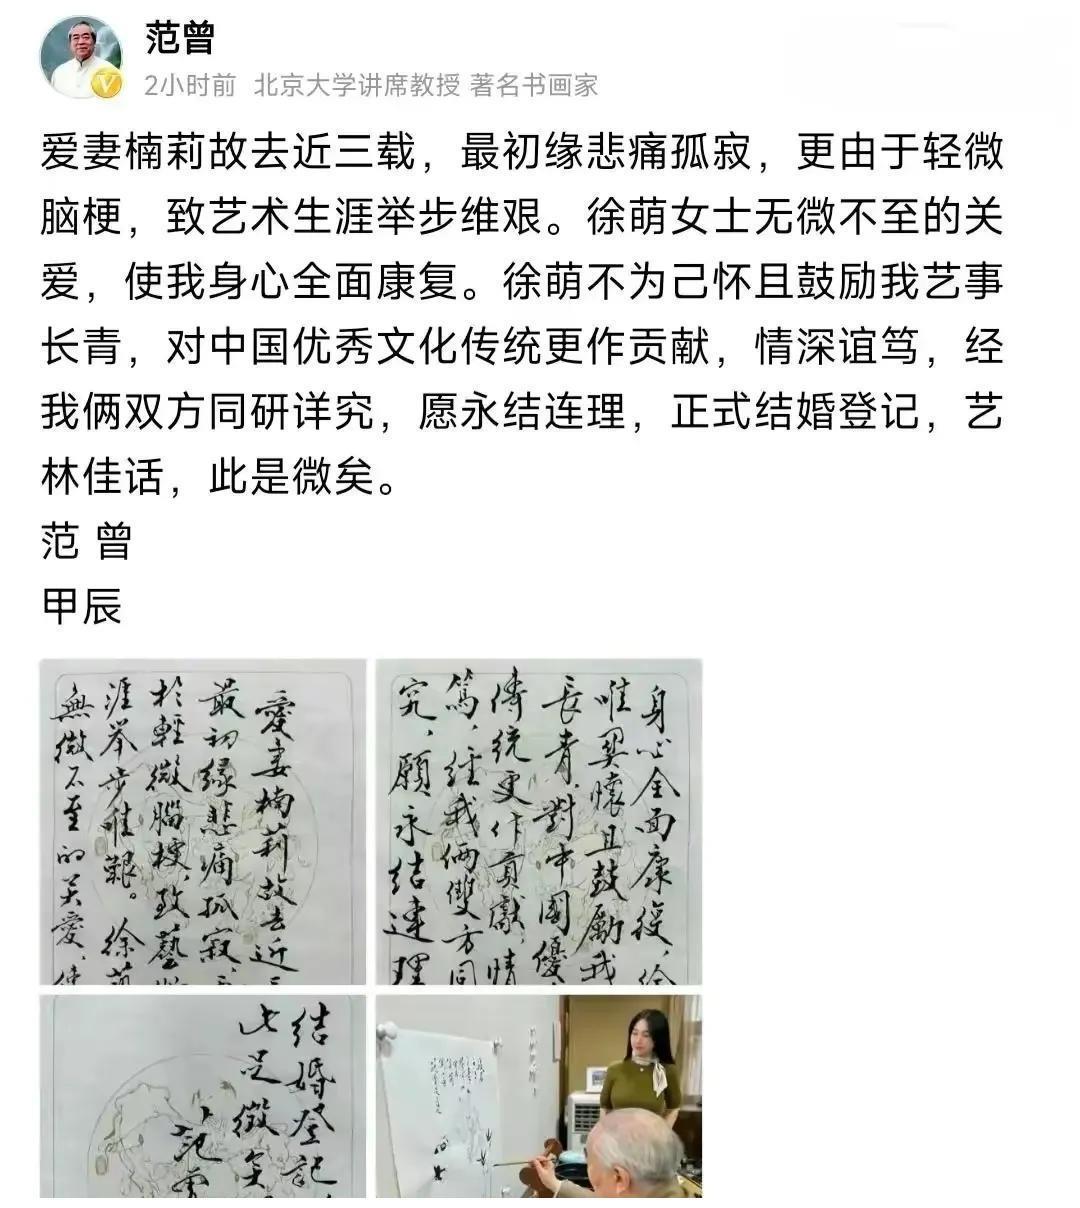 范曾
2小时前 北京大学讲席教授 著名书画家
爱妻楠莉故去近三载，最初缘悲痛孤寂，更由于轻微
脑梗，致艺术生涯举步维艰。徐萌女士无微不至的关
爱，使我身心全面康复。徐萌不为己怀且鼓励我艺事
长青，对中国优秀文化传统更作贡献，情深谊笃，经
我俩双方同研详究，愿永结连理，正式结婚登记，艺
林佳话，此是微矣。
范 曾
甲辰
愛妻楠莉故去近
最初緣悲痛孤寂，
於輕微腦梗，致藝
涯举步維艱。徐萌
無微不至的关愛，使
身心全面康復，徐
唯畀懷且鼓勵我
長青，對中國優
傳統更作貢獻，情
篤，經我俩雙方同
究，願永结連理
结婚登記，
此是微矣
范曾